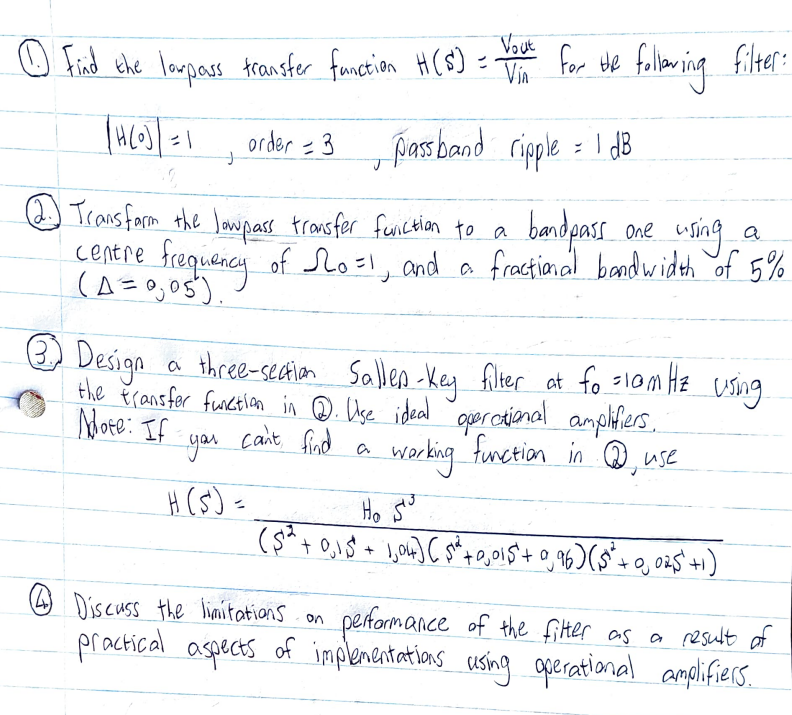 1. Find the lowpass transfer function H(S) = Vout/Vin for the following filter:
|H(0)| = 1 , order = 3 , passband ripple = 1 dB
2. Transform the lowpass transfer function to a bandpass one using a
centre frequency of Ω0 = 1, and a fractional bandwidth of 5%
(Δ = 0,05).
3. Design a three-section Sallen-Key filter at f0 = 10 mHz using
the transfer function in 2. Use ideal operational amplifiers.
Note: If you can't find a working function in 2, use
H(S) = H0 S^3 / (S^2 + 0,1S + 1,04)(S^2 + 0,01S + 0,96)(S^2 + 0,02S + 1)
4. Discuss the limitations on performance of the filter as a result of
practical aspects of implementations using operational amplifiers.